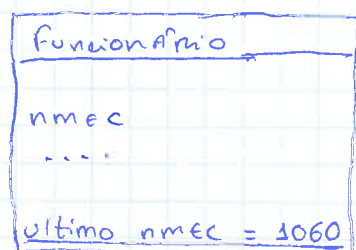 Funcionário
nmec
....
ultimo nmec = 1060